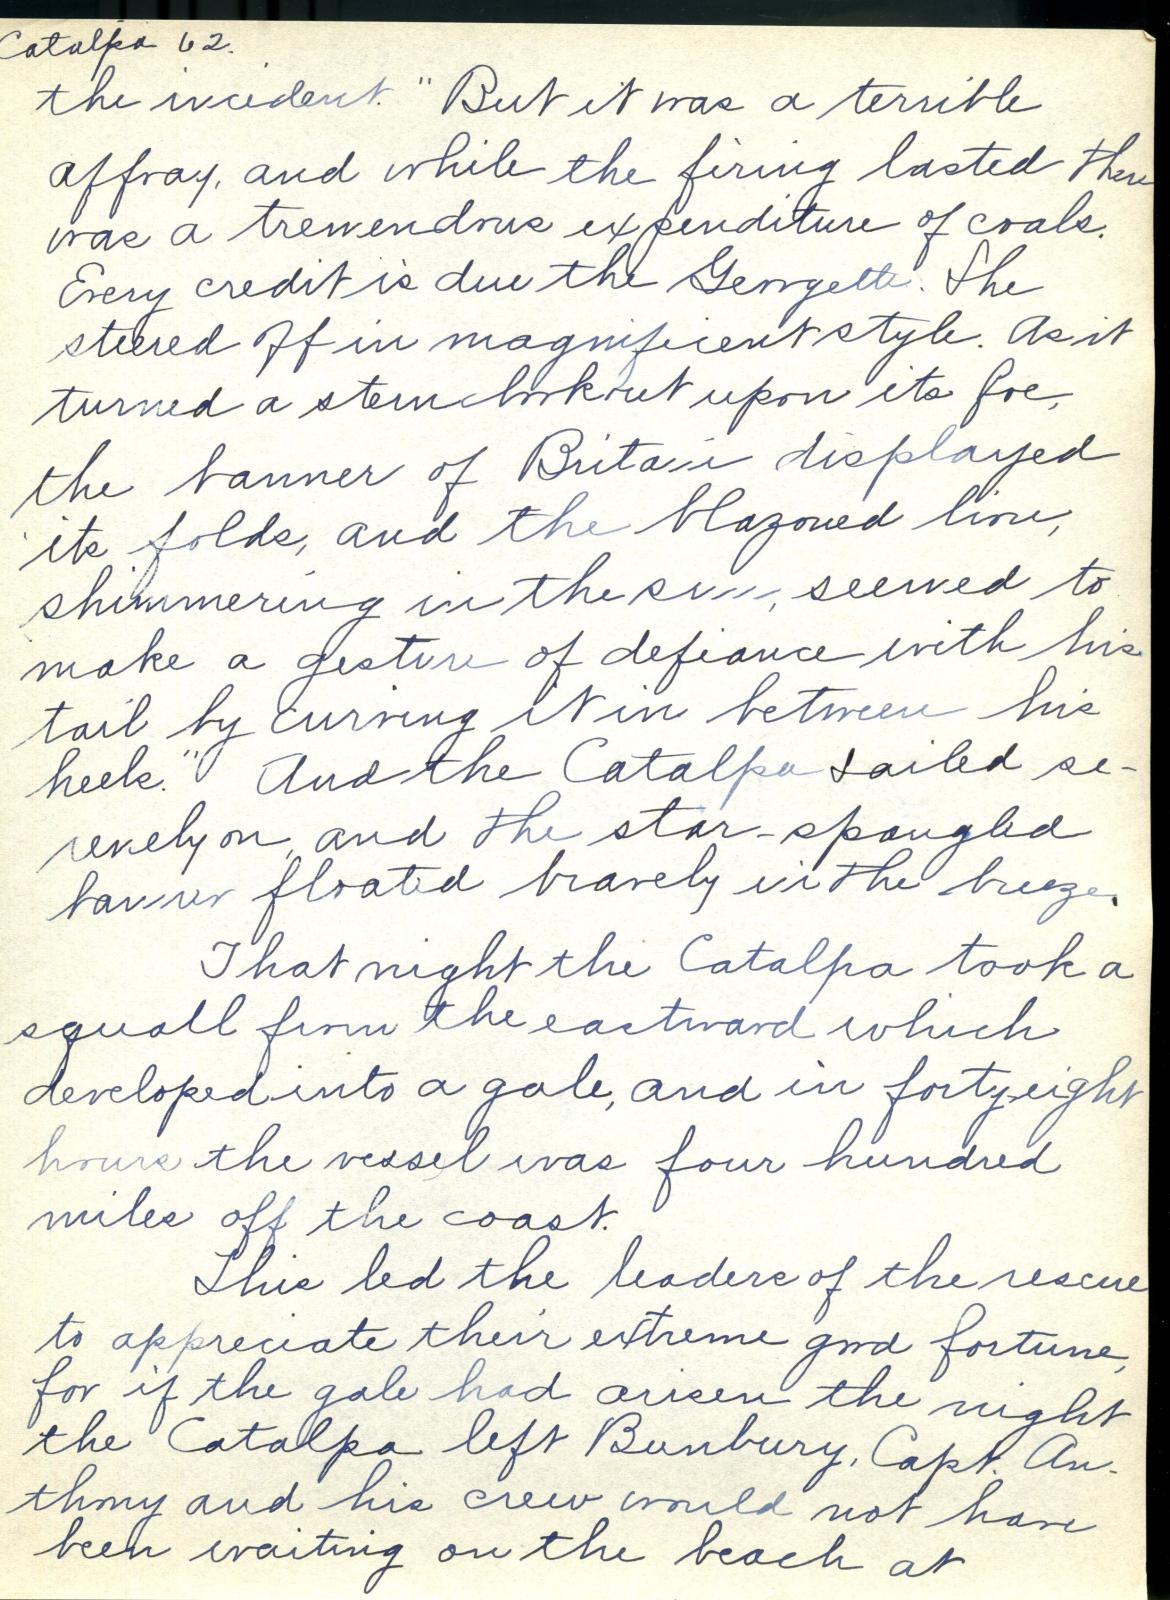 Catalpa 62.
the incident. "But it was a terrible
affray, and while the firing lasted there
was a tremendous expenditure of coals.
Every credit is due the Georgette. She
steered off in magnificent style. As it
turned a stern lookout upon its foe,
the banner of Britain displayed
its folds, and the blazoned lion,
shimmering in the sun, seemed to
make a gesture of defiance with his
tail by curving it in between his
heels." And the Catalpa sailed se-
renely on, and the star-spangled
banner floated bravely in the breeze.
That night the Catalpa took a
squall from the eastward which
developed into a gale, and in forty-eight
hours the vessel was four hundred
miles off the coast.
This led the leaders of the rescue
to appreciate their extreme good fortune,
for if the gale had arisen the night
the Catalpa left Bunbury, Capt. An-
thony and his crew would not have
been waiting on the beach at